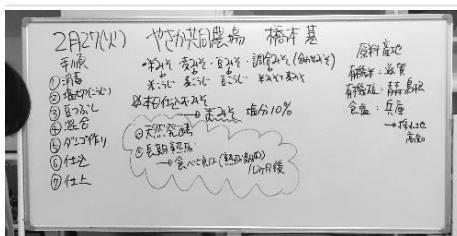 2月27(火) やさか共同農場 橋本 基
手順
①消毒
②塩切り(こうじ)
③豆つぶし
④混合
⑤ダンゴ作り
⑥仕込
⑦仕上
・米みそ・麦みそ・豆みそ・調合みそ(合わせみそ)
米こうじ 麦こうじ 豆こうじ 米みそ+麦みそ
仕込みみそ
→ 麦みそ 塩分10%
天然発酵
長期熟成
→食べごろは(熟成期間)
10ヶ月後
原料産地
有機米:滋賀
有機 : 島根
食塩:兵庫